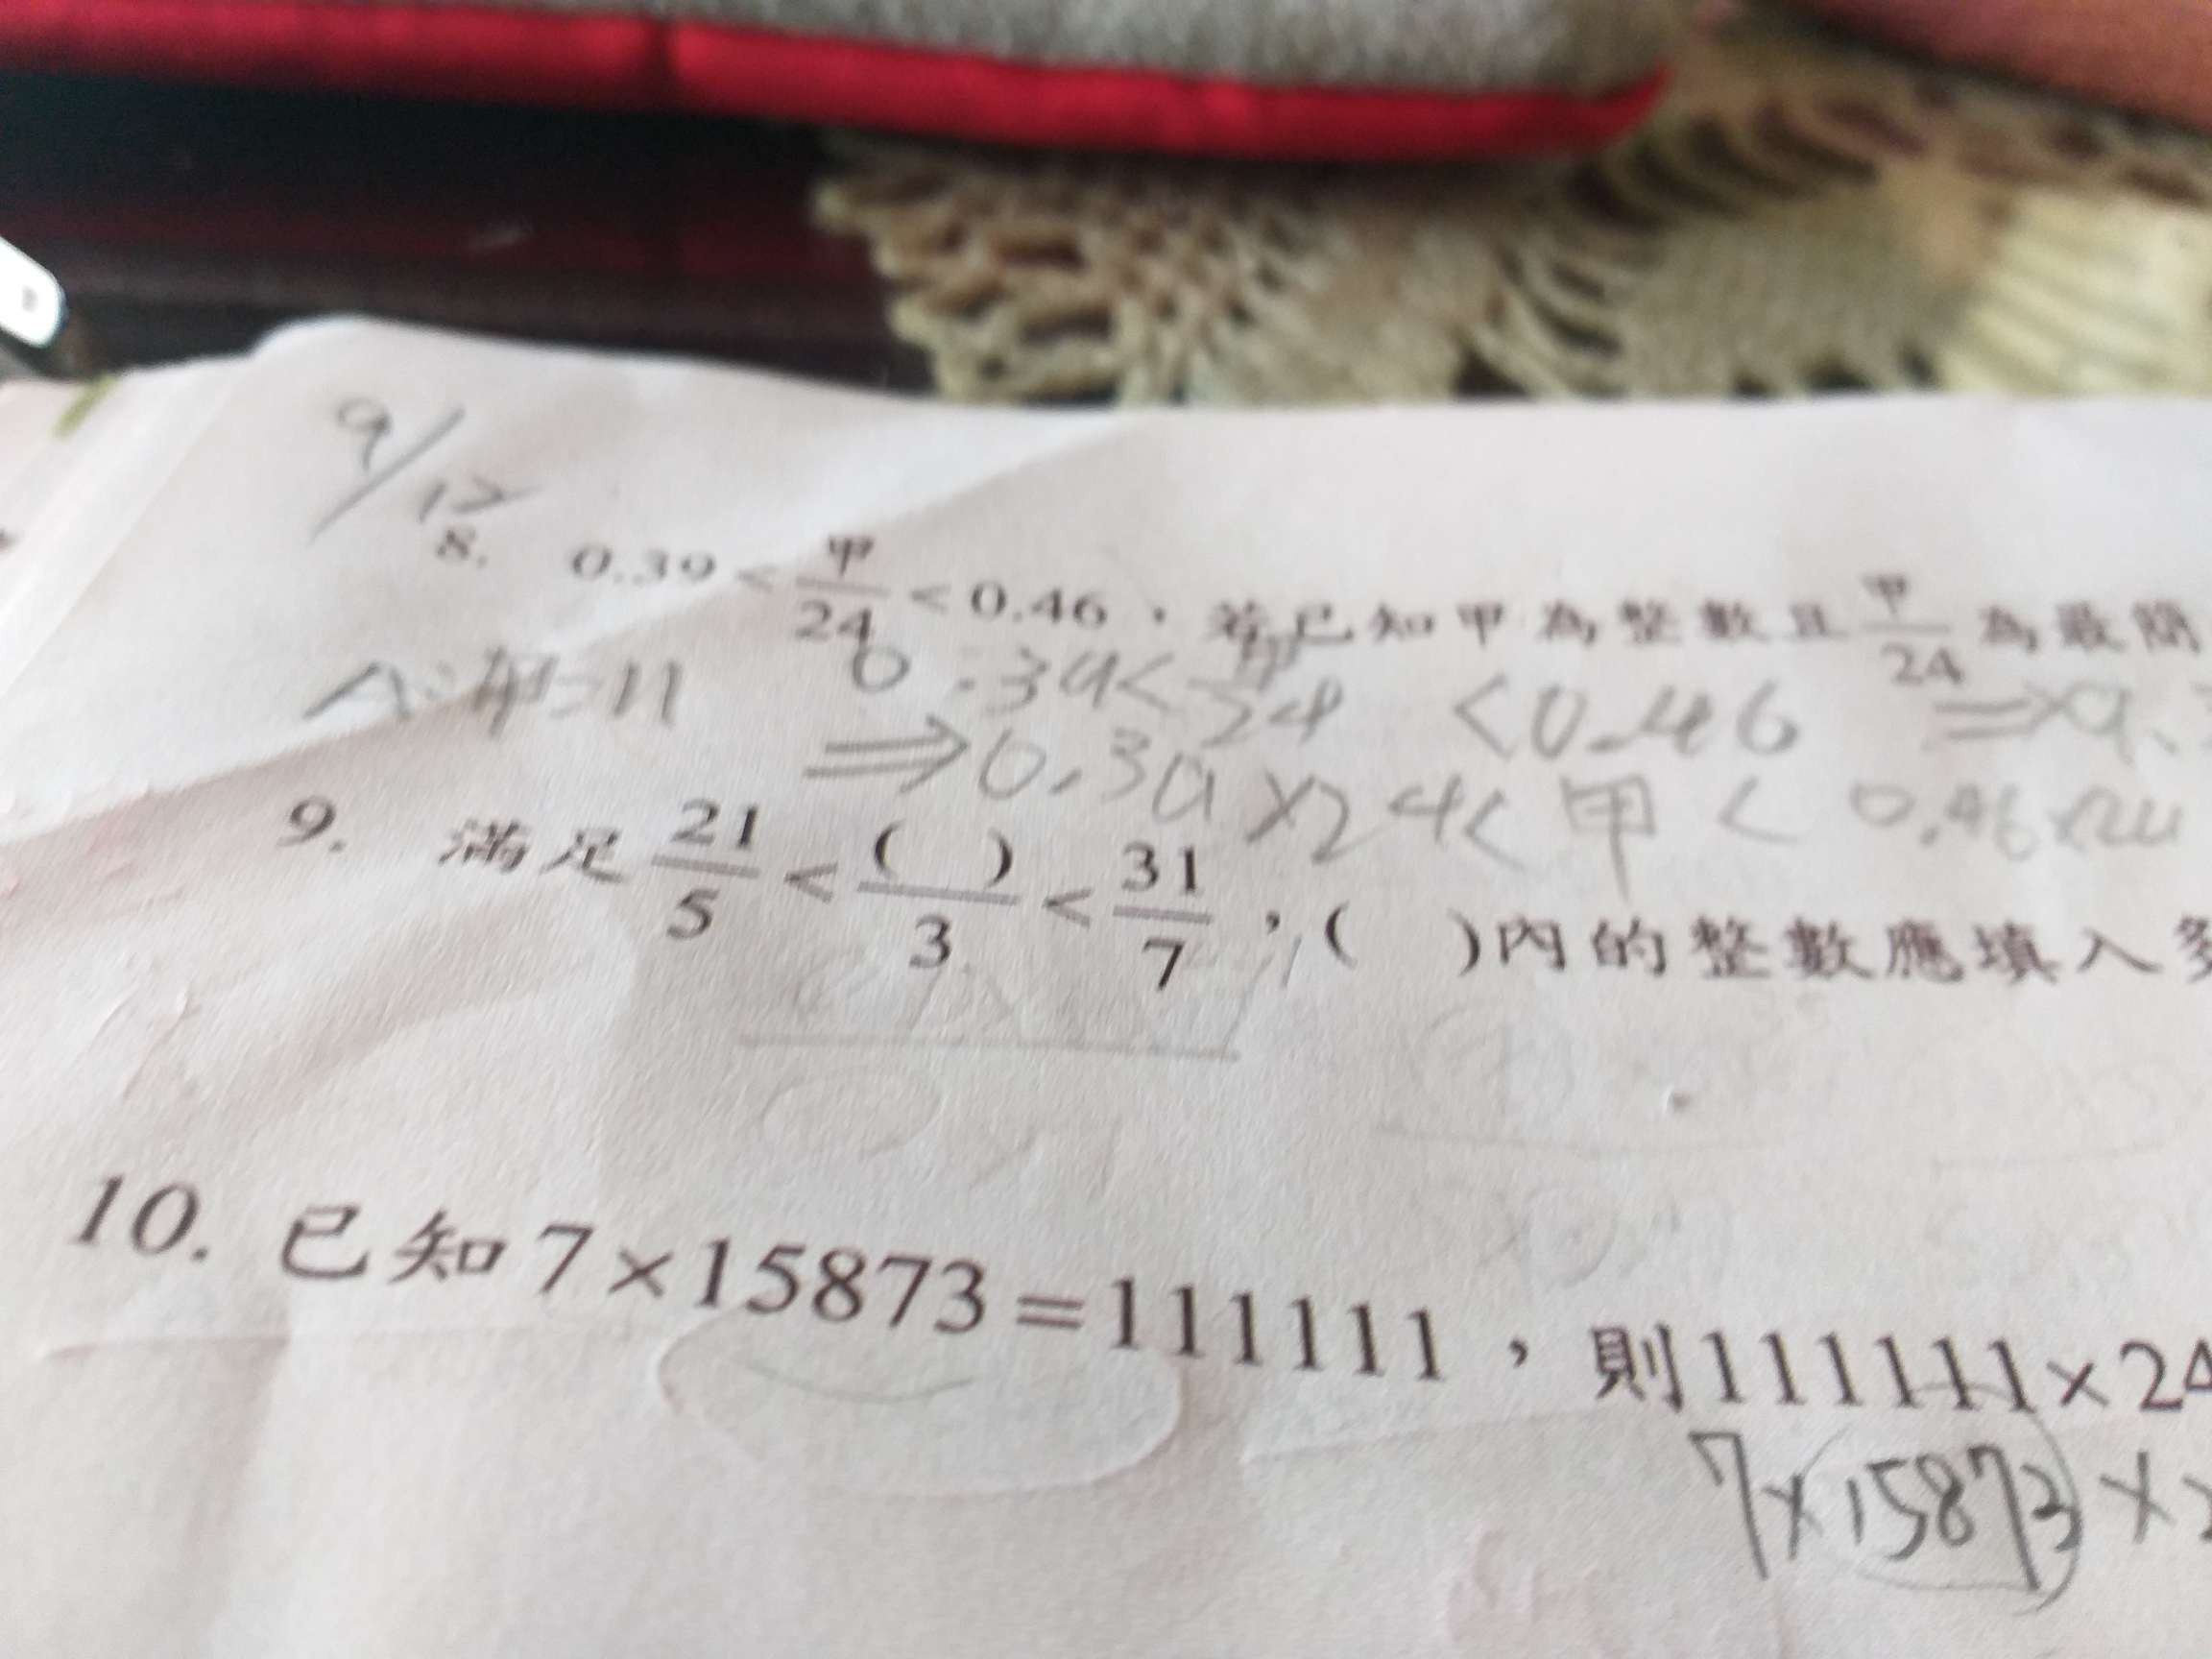 9/17
8. 0.39 < 甲/24 < 0.46，若已知甲為整數且甲/24為最簡
A:甲=11 0.39< 甲/24 <0.46 ⇒9.
⇒0.39×24< 甲 < 0.46×24
9. 滿足21/5 < ( )/3 < 31/7，( )內的整數應填入多
10. 已知7×15873=111111，則111111×24
7×15873×2